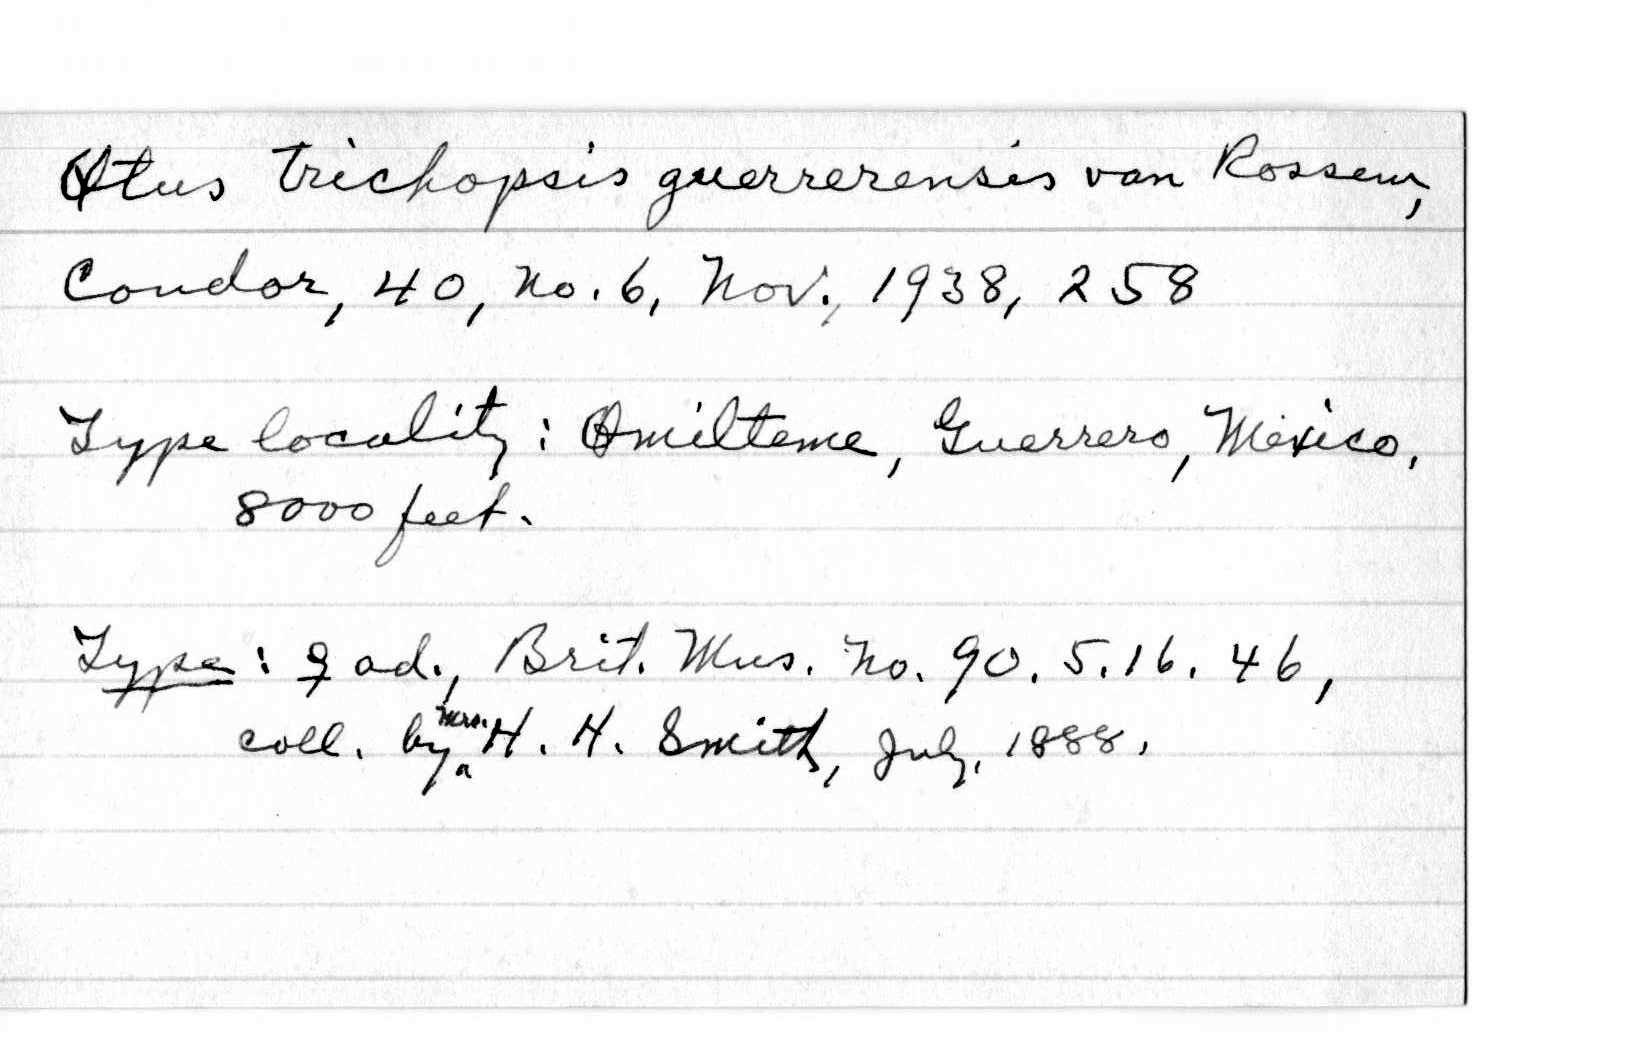 Otus trichopsis guerrerensis van Rossem,
Condor, 40, No. 6, Nov., 1938, 258
Type locality: Omilteme, Guerrero, Mexico,
8000 feet.
Type: ♀ ad., Brit. Mus. No. 90.5.16.46,
coll. by Mrs. H. H. Smith, July, 1888.